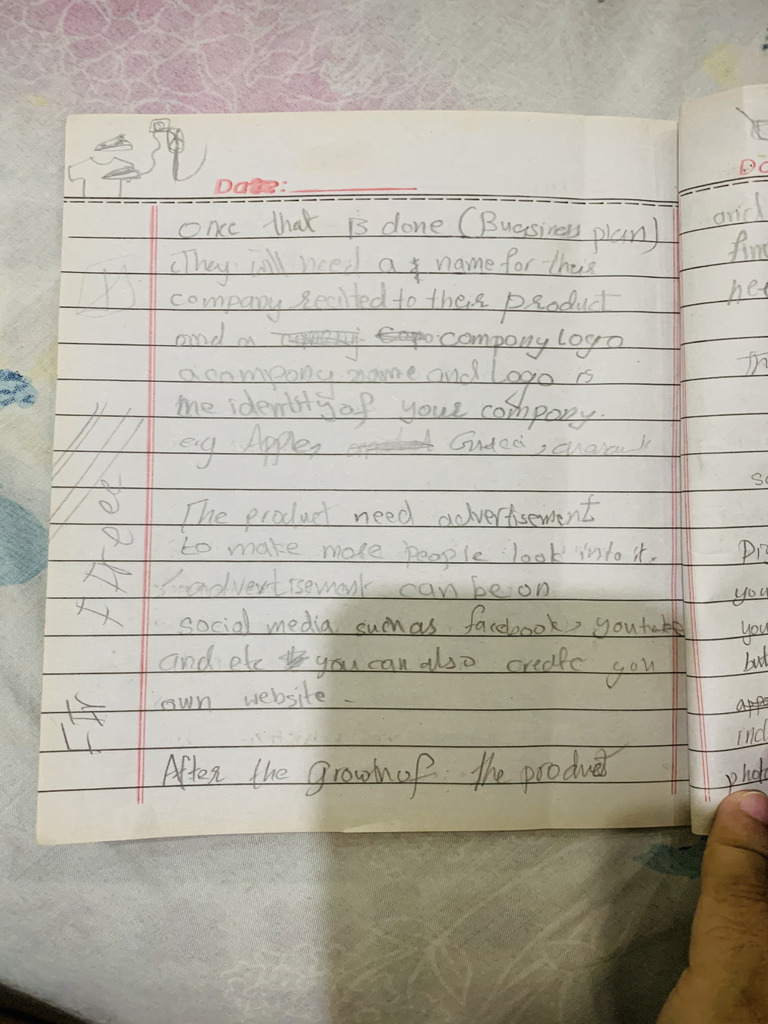 Date:
Once that is done (Bussiness plan)
They will need a name for their
company recited to their product
and a compony logo
a compony name and Logo is
the identity of your company.
eg Apple, Gucci,
The product need advertisement
to make more people look into it.
advertisement can be on
social media such as facebook, youtube
and etc you can also create you
own website.
After the growth of the product
and
find
nee
Th
so
you
you
but
ind
photo